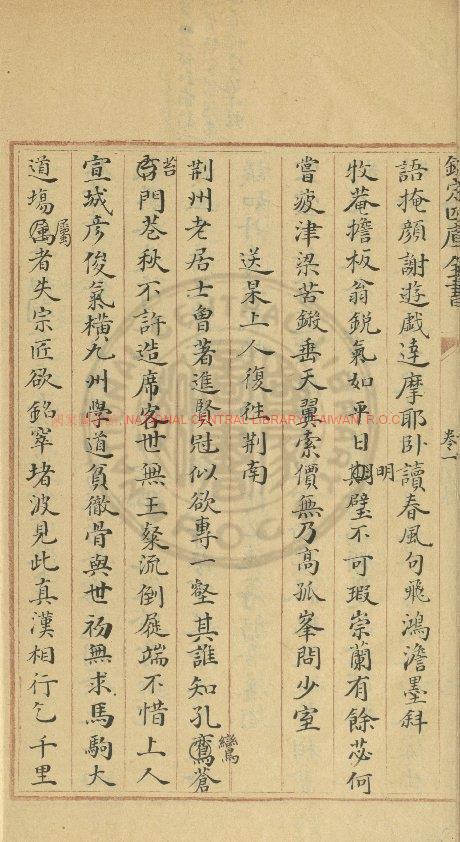 欽定四庫全書
卷一
語掩顔謝遊戲達摩耶卧讀春風句飛鴻澹墨斜
牧菴擔板翁鋭氣如平日期璧不可瑕崇蘭有餘苾何
明
嘗疲津梁苦鍛垂天翼索價無乃高孤峯問少室
送杲上人復徃荆南
荆州老居士曾著進賢冠似欲專一壑其誰知孔鸞蒼
鸞
苔門巷秋不許造席客世無王粲流倒屣端不惜上人
苔
宣城彦俊氣横九州學道貧徹骨與世初無求馬駒大
道塲屬者失宗匠欲銘窣堵波見此真漢相行乞千里
屬
國家圖書館 NATIONAL CENTRAL LIBRARY, TAIWAN, R.O.C.